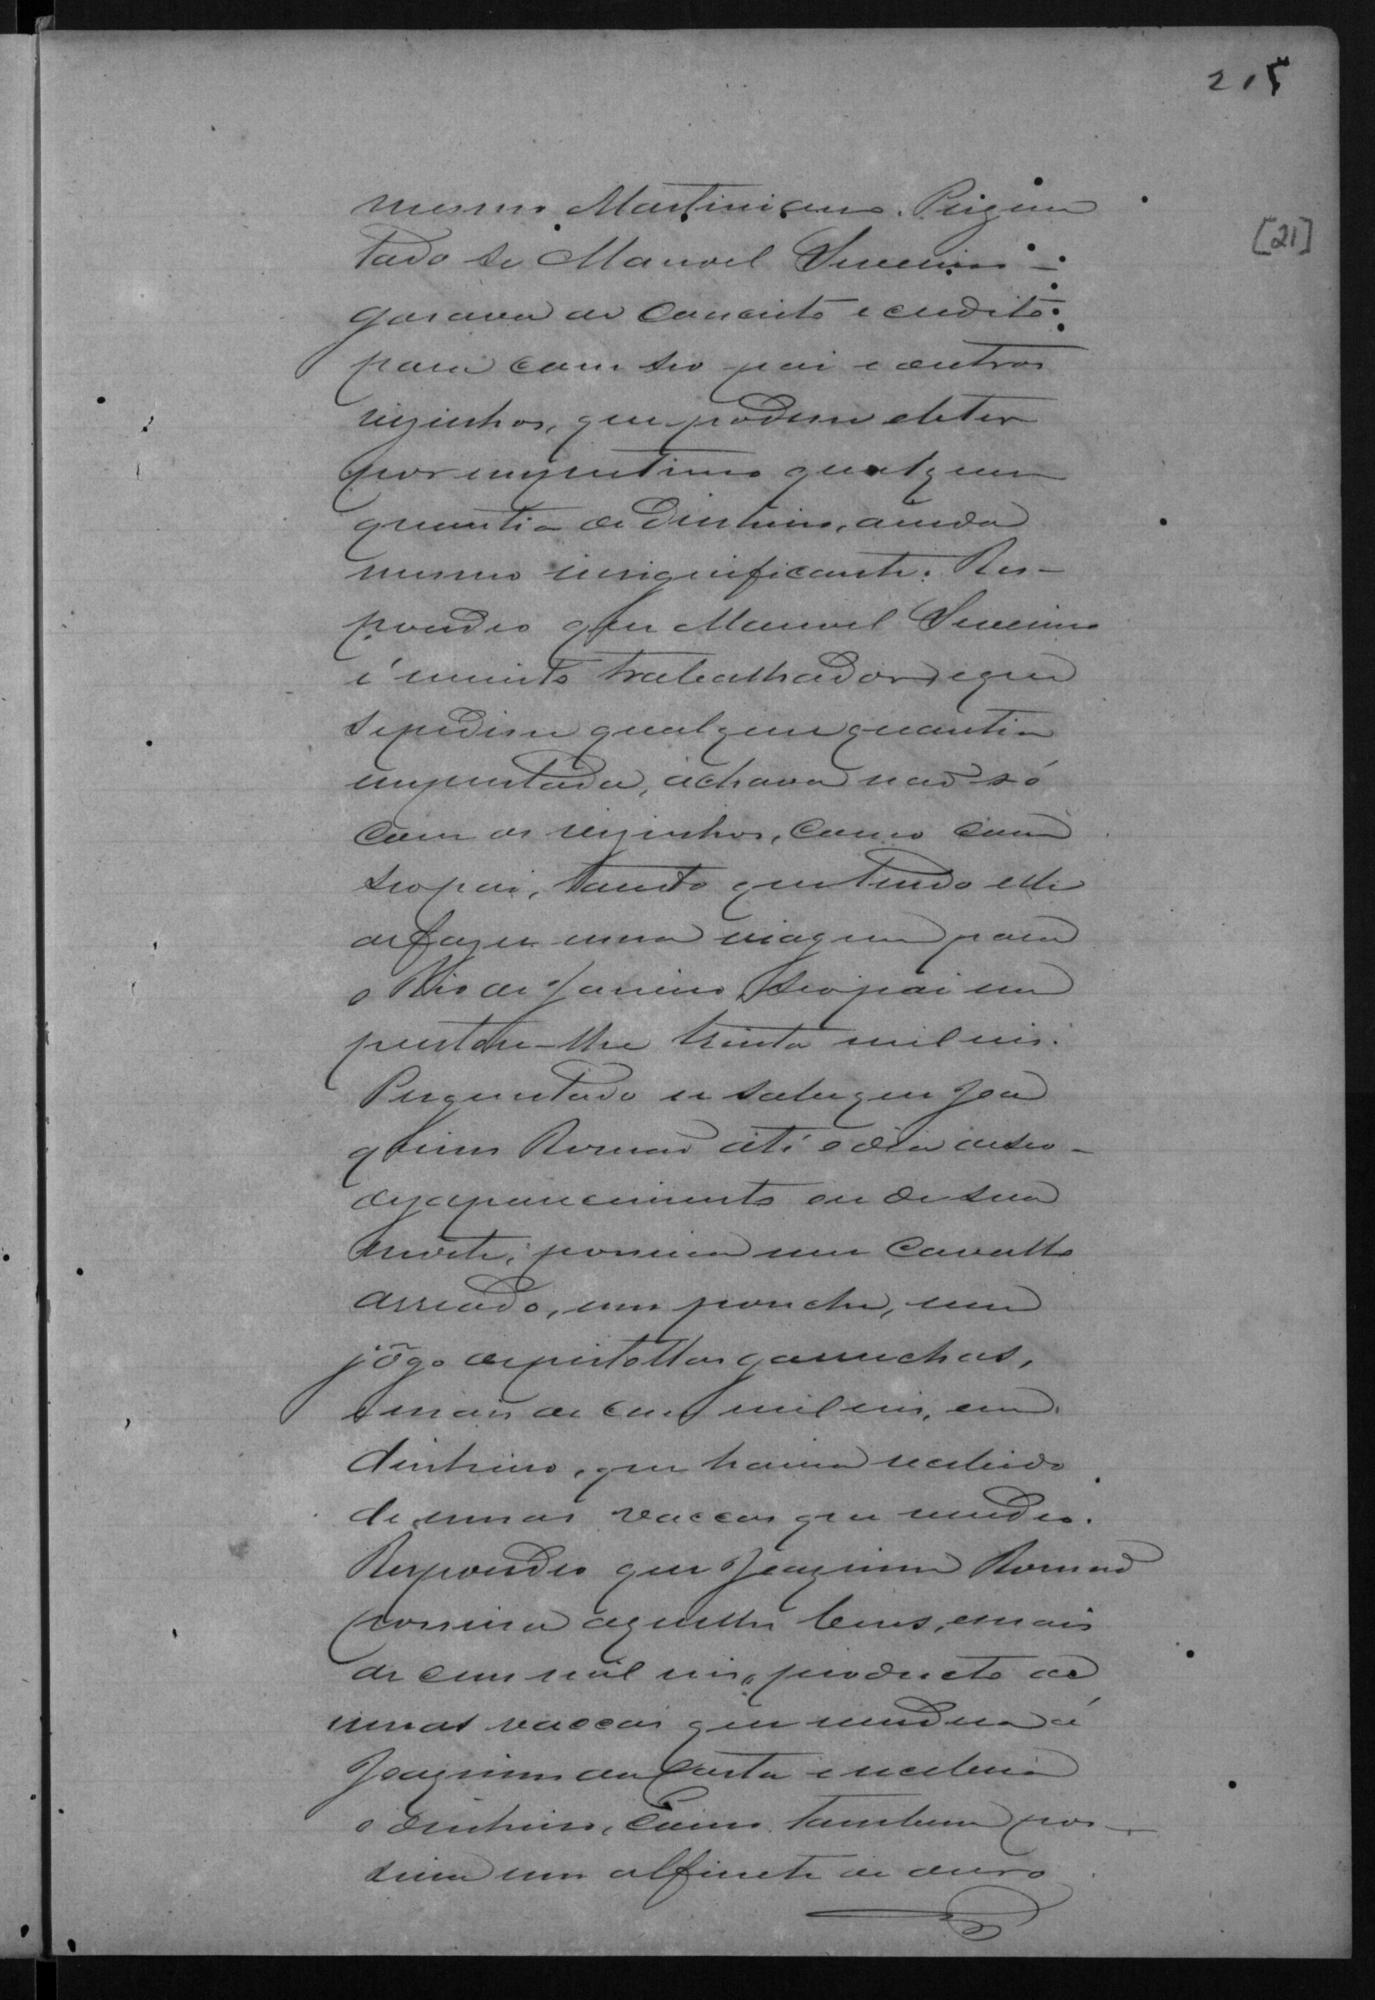 215
[21]
mesmo Martiniano. Pergun
tado se Manoel Severino
gosava de conceito e credito
para com seo pai e outros
vizinhos, que podesse obter
por emprestimo qualquer
quantia de dinheiro, ainda
mesmo insignificante. Res-
pondeo que Manoel Severino
é muito trabalhador, e que
se pedisse qualquer quantia
emprestada, achava não só
com os vizinhos, como com
seo pai, tanto que tendo elle
de fazer uma viagem para
o Rio de Janeiro, seo pai em
prestou-lhe trinta mil reis.
Perguntado se sabe que Joa
quim Romão até o dia de seo
dezaparecimento ou de sua
morte, possuia um cavallo
arreado, um ponche, um
jôgo de pistollas garruchas,
e mais de cem mil reis, em
dinheiro, que havia recebido
de umas vaccas que vendeo.
Respondeo que Joaquim Romão
possuia aquelles bens, e mais
de cem mil reis, producto de
umas vaccas que vendera á
Joaquim da Costa e recebeu
o dinheiro, como tambem pos-
suia um alfinete de ouro